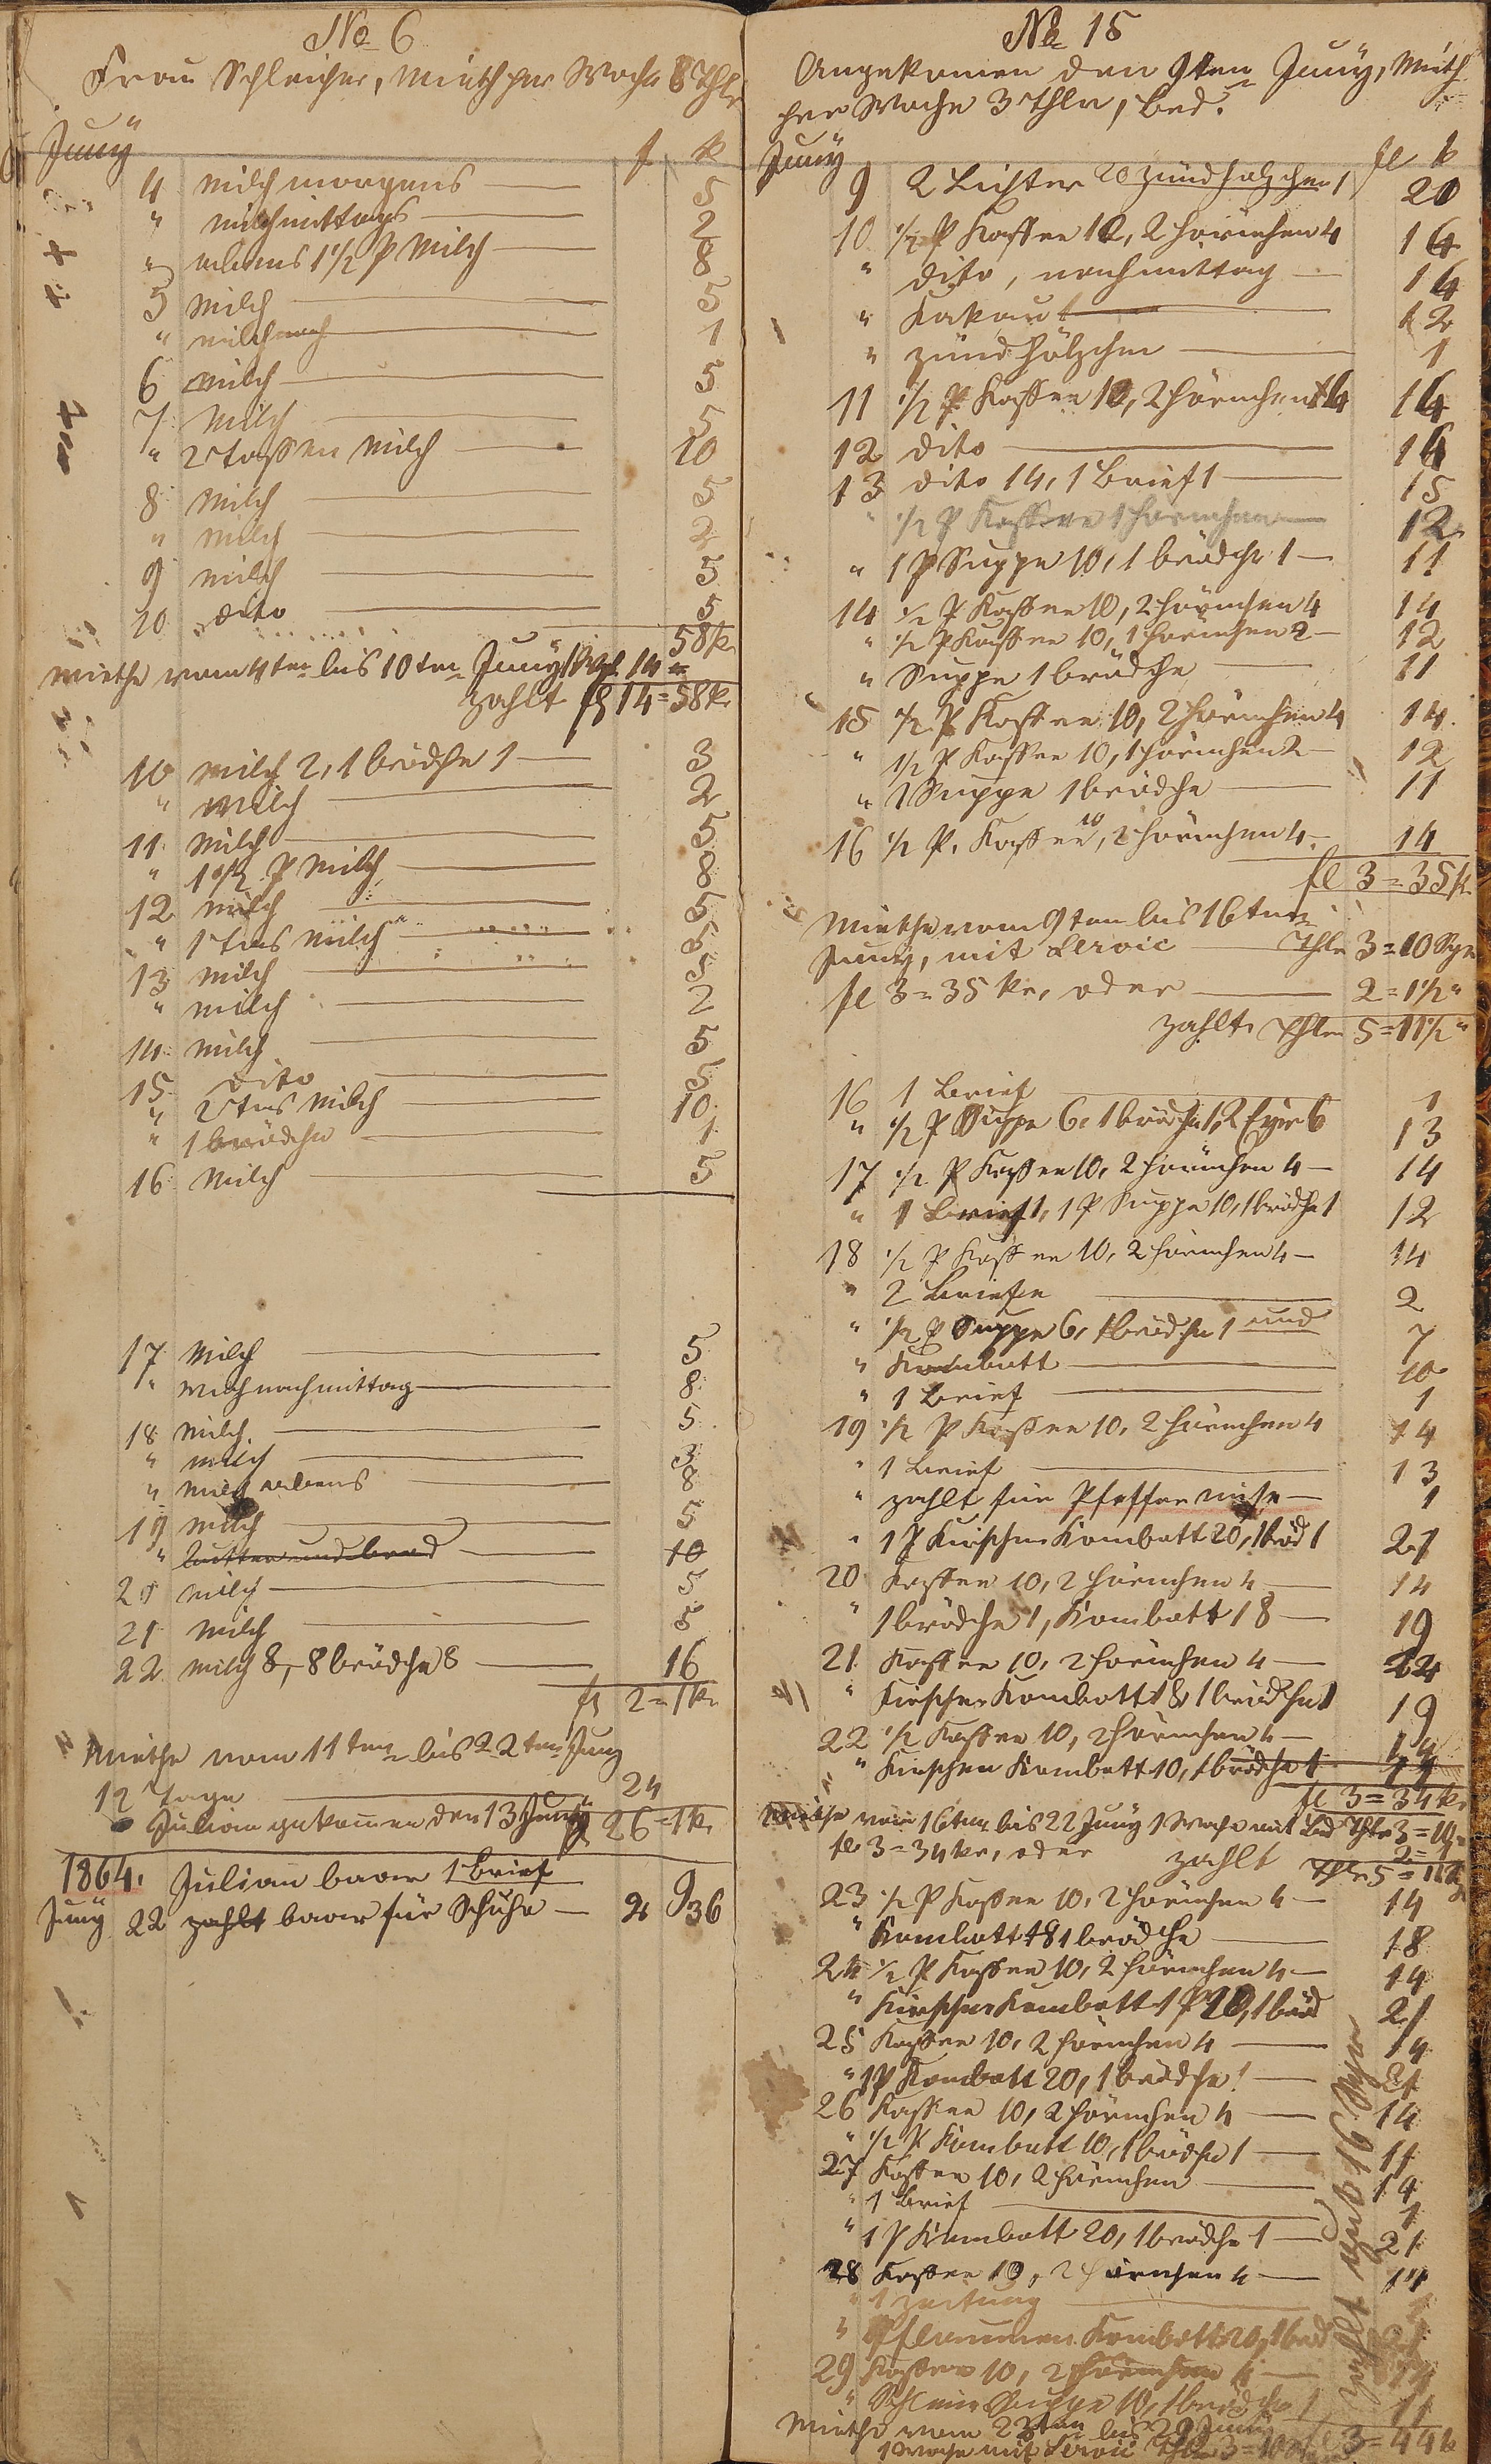 No 6
Frau Schleicher, Mieth per Woche 8 Thlr
Juny f k
4 Milch morgens — 5
" Milch mittags — 2
" abens 1 1/2 P Milch — 8
5 Milch — 5
" Milch — 1
6 Milch — 5
7 Milch — 5
" 2 Tassen Milch — 10
8 Milch — 5
" Milch — 2
9 Milch — 5
10 dito — 5
58 kr
Miethe vom 4ten bis 10ten Juny 14 =
zahlt fl 14 = 58 k
10 Milch 2, 1 brödche 1 — 3
" Milch — 2
11 Milch — 5
" 1 1/2 P Milch — 8
12 Milch — 5
" 1 tas Milch — 5
13 Milch — 5
" Milch — 2
14 Milch — 5
15 dito — 5
" 2 tas Milch — 10
" 1 brödche — 1
16 Milch — 5
17 Milch — 5
" nachmittag — 8
18 Milch — 5
" Milch — 3
" Milch abens — 8
19 Milch — 5
" butter und brod — 10
20 Milch — 5
21 Milch — 5
22 Milch 8, 8 brödche 8 — 16
fl 2 = 1 kr
Miethe vom 11ten bis 22ten Juny
12 Tage — 24
Julian gekomen den 13 Juny fl 26 = 1 kr
1864. Julian baar 1 Brief
Juny 22 zahlt baar für Schuhe — 2 36
No 15
Angekomen den 9ten Juny, Mieth
per Woche 3 Thlr, Bed.
Juny fl k
9 2 Lichter 20 zündholzchen 1 20
10 1/2 P Kaffee 10, 2 hörnchen 4 14
" dito, nachmittag — 14
" Kakau — 12
" zündhölzchen — 1
11 1/2 P Kaffee 10, 2 hörnchen 4 14
12 dito — 14
13 dito 14, 1 Brief 1 — 15
" 1/2 P Kaffee 1 hörnchen — 12
" 1 P Suppe 10, 1 brödche 1 — 11
14 1/2 P Kaffee 10, 2 hörnchen 4 14
" 1/2 P Kaffee 10, 1 hörnchen 2 — 12
" Suppe 1 brödche — 11
15 1/2 P Kaffee 10, 2 hörnchen 4 14
" 1/2 P Kaffee 10, 1 hörnchen 2 — 12
" 1 Suppe 1 brödche — 11
16 1/2 P. Kaffee 10, 2 hörnchen 4 — 14
fl 3 = 35 k
Miethe vom 9ten bis 16ten
Juny, mit Servic — Thlr 3 = 10 Sgr
fl 3 = 35 kr, oder — 2 = 1 1/2 "
zahlt Thlr 5 = 11 1/2 "
16 1 Brief — 1
" 1/2 P Suppe 6, 1 brödche 1, 2 Eyer 6 13
17 1/2 P Kaffee 10, 2 hörnchen 4 — 14
" 1 Brief 1, 1 P Suppe 10, 1 brödche 1 12
18 1/2 P Kaffee 10, 2 hörnchen 4 — 14
" 2 Briefe — 2
" 1/2 P Suppe 6, 1 brödche 1 und 7
" Kombott — 10
" 1 Brief — 1
19 1/2 P Kaffee 10, 2 hörnchen 4 14
" 1 Brief — 13
" zahlt für Pfeffernüße — 1
" 1 P Kirschen Kombott 20, 1 bröd 1 21
20 Kaffee 10, 2 hörnchen 4 — 14
" 1 brödche 1, Kombott 18 — 19
21 Kaffee 10, 2 hörnchen 4 — 14
" Kirschen Kombott 18 1 brödche 1 19
22 1/2 Kaffee 10, 2 hörnchen 4 — 14
" Kirschen Kombott 10, 1 brödche 1 11
fl 3 = 34 kr
Miethe vom 16ten bis 22 Juny 1 Woche mit Bed Thlr 3 = 10
fl 3 = 34 kr, oder 2 =
zahlt Thlr 5 =
23 1/2 P Kaffee 10, 2 hörnchen 4 — 14
" Kombott 18 1 brödche — 18
24 1/2 P Kaffee 10, 2 hörnchen 4 — 14
" Kirschen Kombott 1 P 20, 1 bröd 21
25 Kaffee 10, 2 hörnchen 4 — 14
" 1 P Kombott 20, 1 brödche 1 — 21
26 Kaffee 10, 2 hörnchen 4 — 14
" 1/2 P Kombott 10, 1 brödche 1 — 11
27 Kaffee 10, 2 hörnchen — 14
" 1 Brief — 1
" 1 P Kombott 20, 1 brödche 1 — 21
28 Kaffee 10, 2 hörnchen 4 — 14
" 1 Zeitung —
" Pflaumen Kombott 20, 1 bröd 21
29 Kaffee 10, 2 hörnchen 4 — 14
" Schleim Suppe 10, 1 brödche 1 11
Miethe vom 23ten bis 29 Juny
1 Woche mit Servic Thlr 3 = 10 fl 3 = 44 k
zahlt 16 Sgr